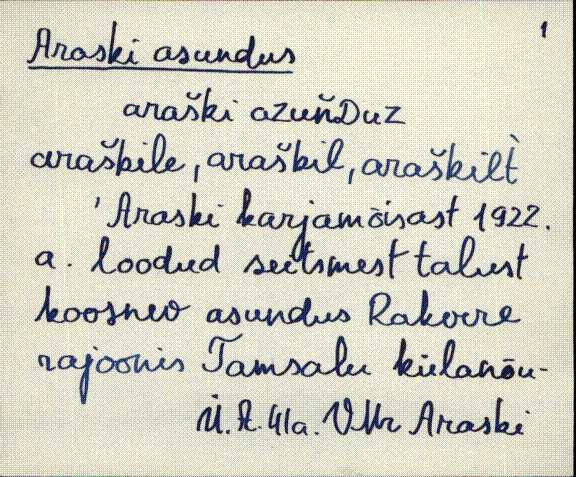 1
Araski asundus
araški azuňDuz
araškile, araškil, araškilt̀
'Araski karjamõisast 1922.
a. loodud seitsmest talust
koosnev asundus Rakvere
rajoonis Tamsalu külanõu-
Ü. R. 41a. VMr Araski